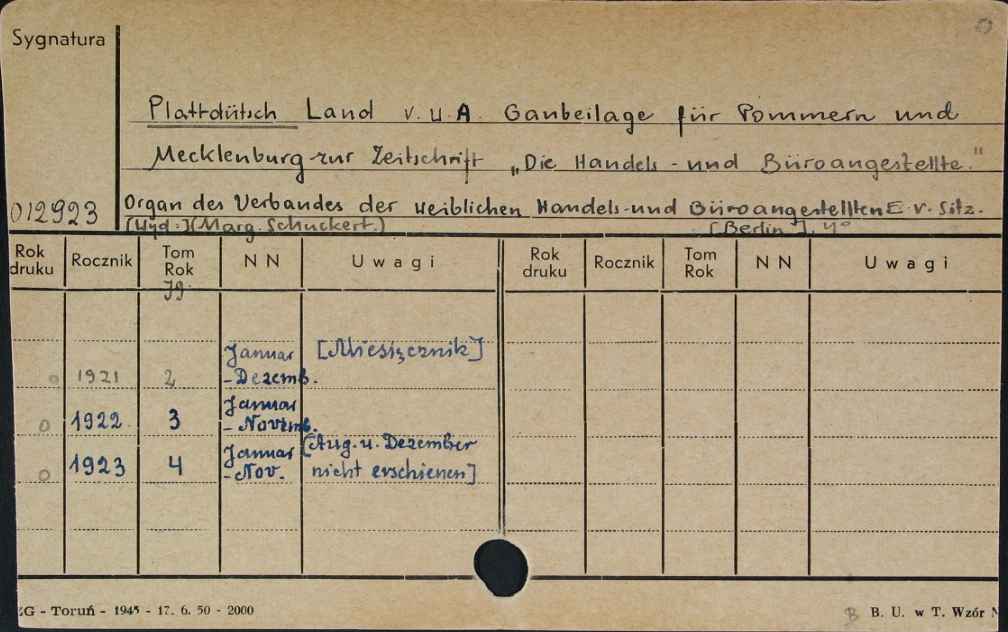 Sygnatura
Plattdütsch Land v. u. A Gaubeilage für Pommern und
Mecklenburg zur Zeitschrift „Die Handels- und Büroangestellte."
012923 Organ des Verbandes der weiblichen Handels- und Büroangestellten E. v. Sitz.
[Wyd:] (Marg. Schuckert.) [Berlin], 4°
Rok druku Rocznik Tom Rok Jg. NN Uwagi Rok druku Rocznik Tom Rok NN Uwagi
Januar [Miesięcznik]
0 1921 2 -Dezemb.
Januar
0 1922 3 - Novemb.
Januar [Aug. u. Dezember
0 1923 4 -Nov. nicht erschienen]
ZG - Toruń - 1945 - 17. 6. 50 - 2000 B. U. w T. Wzór N